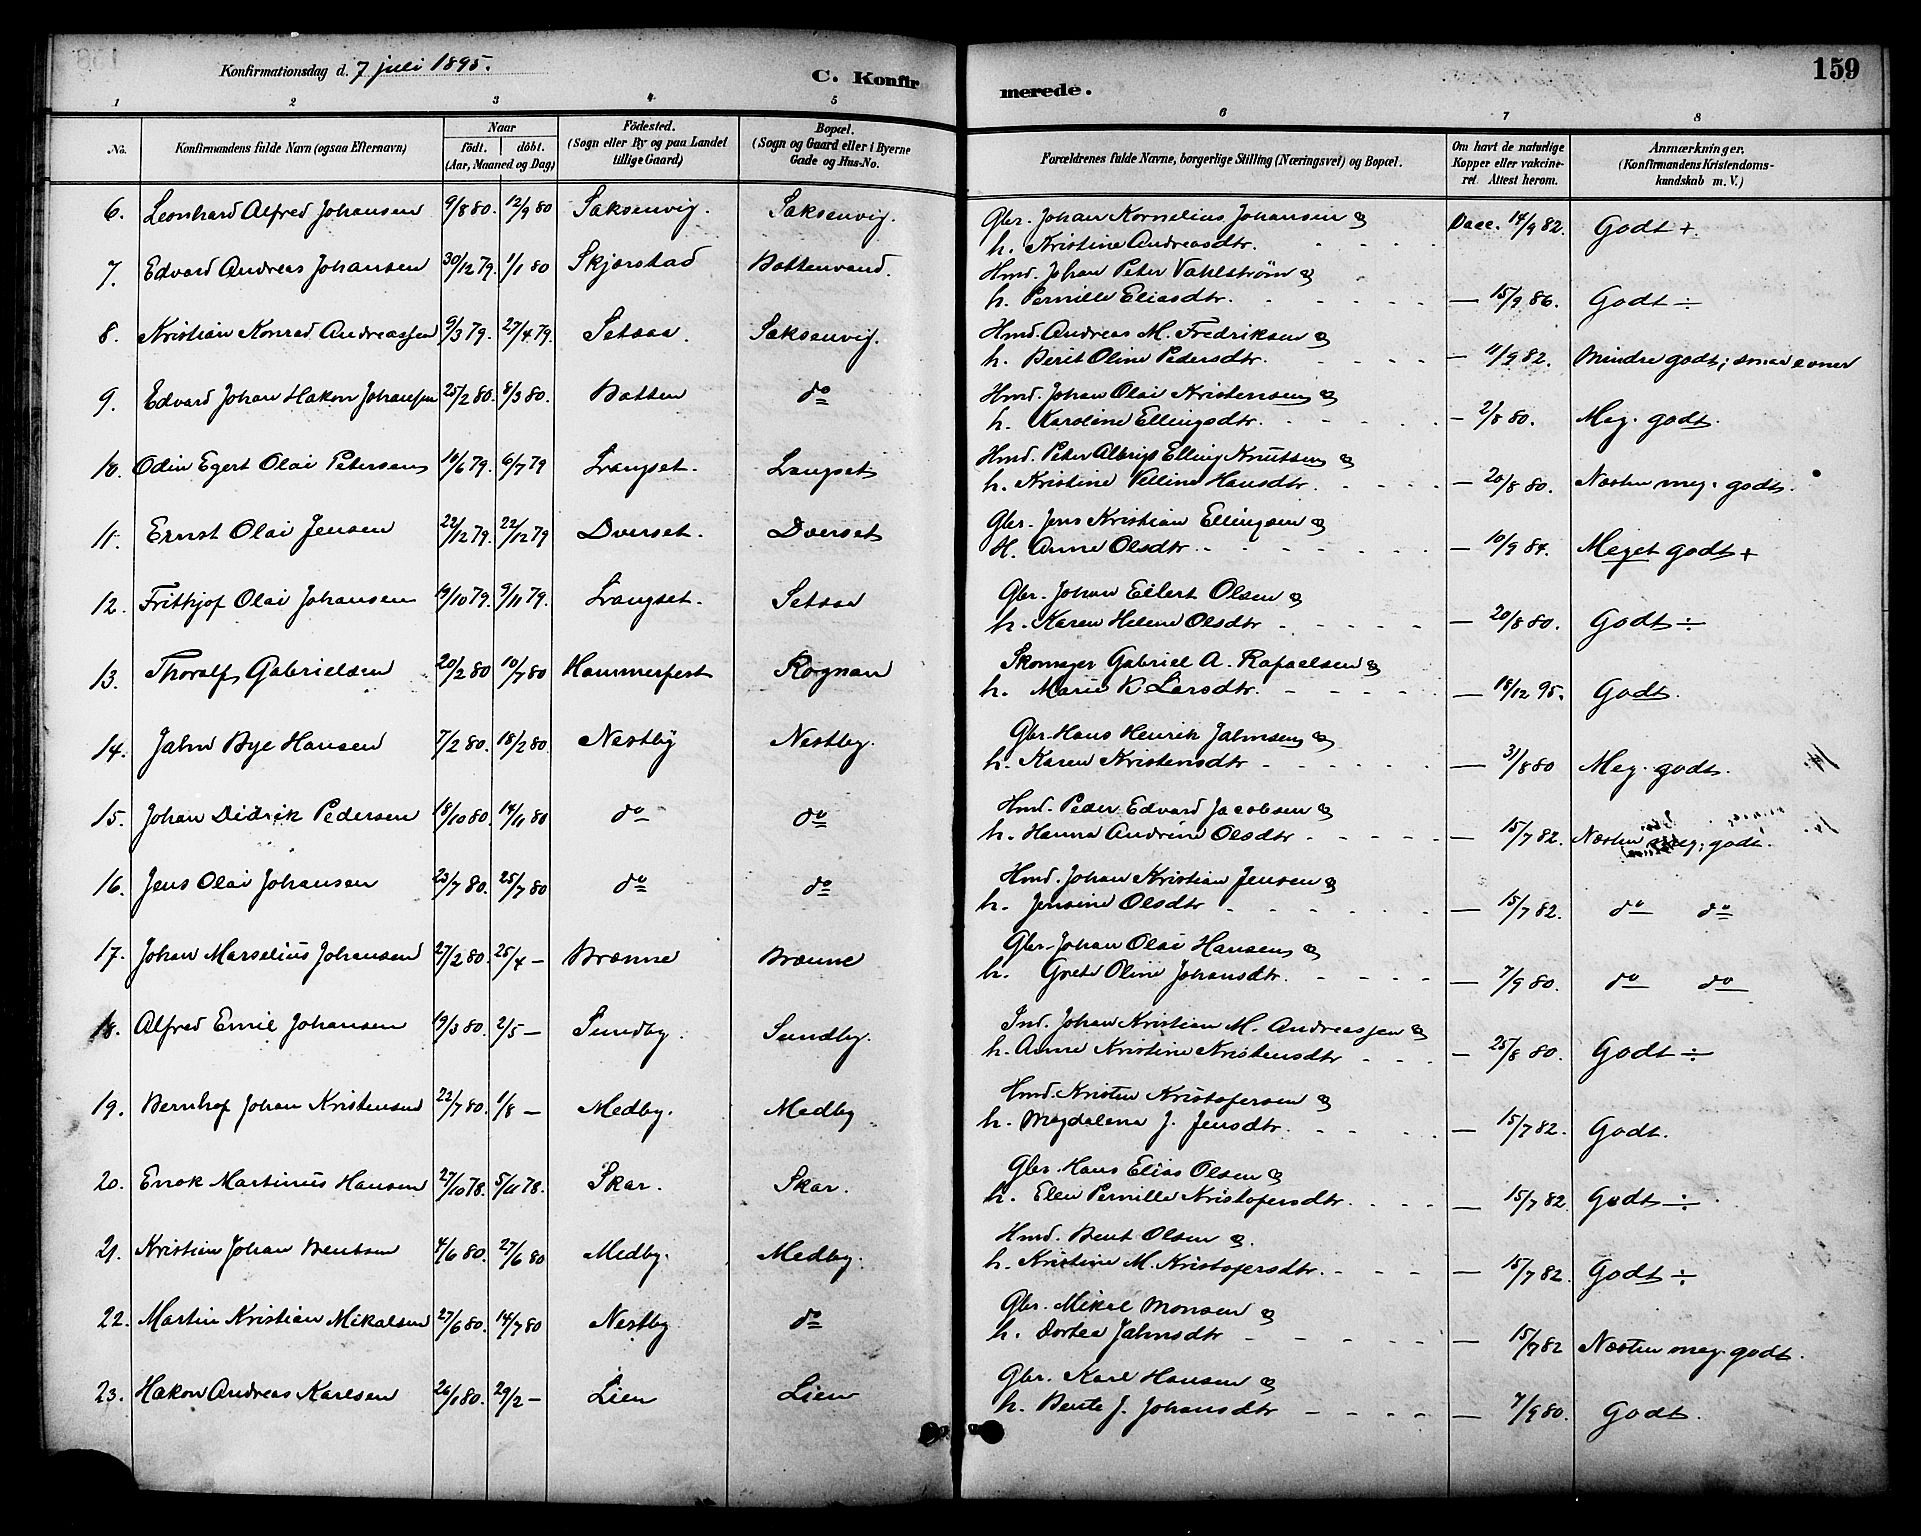 Konfirmationsdag d. 7 juli 1895.
C. Konfir
merede.
159
1 2 3 4 5 6 7 8
No. Konfirmandens fulde Navn (ogsaa Efternavn) Naar födt. döbt. (Aar, Maaned og Dag) Födested. (Sogn eller By og paa Landet tillige Gaard) Bopæl. (Sogn og Gaard eller i Byerne Gade og Hus-No. Forældrenes fulde Navne, borgerlige Stilling (Næringsvei) og Bopæl. Om havt de naturlige Kopper eller vakcineret. Attest herom. Anmærkninger. (Konfirmandens Kristendomskundskab m. V.)
6. Leonhard Alfred Johansen 9/8 80. 12/9 80 Saksenvig. Saksenvig. Gbr. Johan Kornelius Johansen og
h. Kristine Andreasdtr. Vacc. 14/9 82. Godt +
7. Edvard Andreas Johansen 30/12 79. 1/1 80 Skjerstad Bottenvand. Hmd. Johan Peter Vahlström og
h. Pernille Eliasdtr. — 15/9 86. Godt ÷
8. Kristian Konrad Andreassen 9/3 79. 27/4 79. Setsaa. Saksenvig. Hmd. Andreas M. Fredriksen og
h. Berit Oline Pedersdtr. — 11/9 82. Mindre godt; smaa evner
9. Edvard Johan Hakon Johansen 25/2 80. 8/3 80. Botten do Hmd. Johan Olai Kristensen og
h. Karoline Ellingsdtr. — 2/8 80. Meg. godt.
10. Odin Egert Olai Petersen 10/6 79. 6/7 79 Langset. Langset Hmd. Peter Albrigt Elling Knutsen og
h. Kristine Velline Hansdtr. — 20/8 80. Næsten meg. godt.
11. Ernst Olai Jensen 22/12 79. 22/12 79 Dverset. Dverset Gbr. Jens Kristian Ellingsen og
H. Anne Olsdtr. — 10/9 84. Meget godt +
12. Frithjof Olai Johansen 19/10 79. 9/11 79. Langset. Setsaa Gbr. Johan Eilert Olsen og
h. Karen Helene Olsdtr — 20/8 80. Godt ÷
13. Thoralf Gabrielsen 20/2 80 10/7 80 Hammerfest Rognan Skomager Gabriel A. Rafaelsen og
h. Marie B Larsdtr. — 18/12 95. Godt.
14. Jahn Bye Hansen 7/2 80. 18/2 80. Nestby Nestby. Gbr. Hans Henrik Jahnsen og
h. Karen Kristensdtr — 31/8 80 Meg. godt.
15. Johan Didrik Pedersen 18/10 80. 14/11 80 do do Hmd. Peder Edvard Jacobsen og
h. Hanna Andrine Olsdtr — 15/7 82. Næsten meg. godt.
16. Jens Olai Johansen 23/7 80. 25/7 80 do do Hmd. Johan Kristian Jensen og
h. Jensine Olsdtr — 15/7 82. do do
17. Johan Marselius Johansen 27/2 80. 25/4 — Brænne Brænne Gbr. Johan Olai Hansen og
h. Grete Oline Johansdtr. — 7/9 80. do do
18. Alfred Emil Johansen 19/3 80. 2/5 — Sundby. Sundby. Ind. Johan Kristian M. Andreassen og
h. Anne Kristine Kristensdtr — 25/8 80. Godt ÷
19. Bernhof Johan Kristensen 22/7 80. 1/8 — Medby. Medby Hmd. Kristen Kristofersen og
h. Magdalena J. Jensdtr. — 15/7 82. Godt.
20. Enok Martinus Hansen 27/10 78. 5/11 78. Skar. Skar. Gbr. Hans Elias Olsen og
h. Elen Pernille Kristofersdtr. — 15/7 82. Godt ÷
21. Kristian Johan Bentsen 4/6 80. 27/6 80 Medby. Medby. Hmd. Bent Olsen og.
h. Kristine M. Kristofersdtr. — 15/7 82. Godt ÷
22. Martin Kristian Mikalsen 27/6 80. 14/7 80 Nestby do Gbr. Mikal Monsen og
h. Dortea Jahnsdtr — 15/7 82 Næsten meg. godt.
23. Hakon Andreas Karlsen 26/1 80. 29/2 — Lien Lien Gbr. Karl Hansen og
h. Bente J. Johansdtr — 7/9 80. Godt.